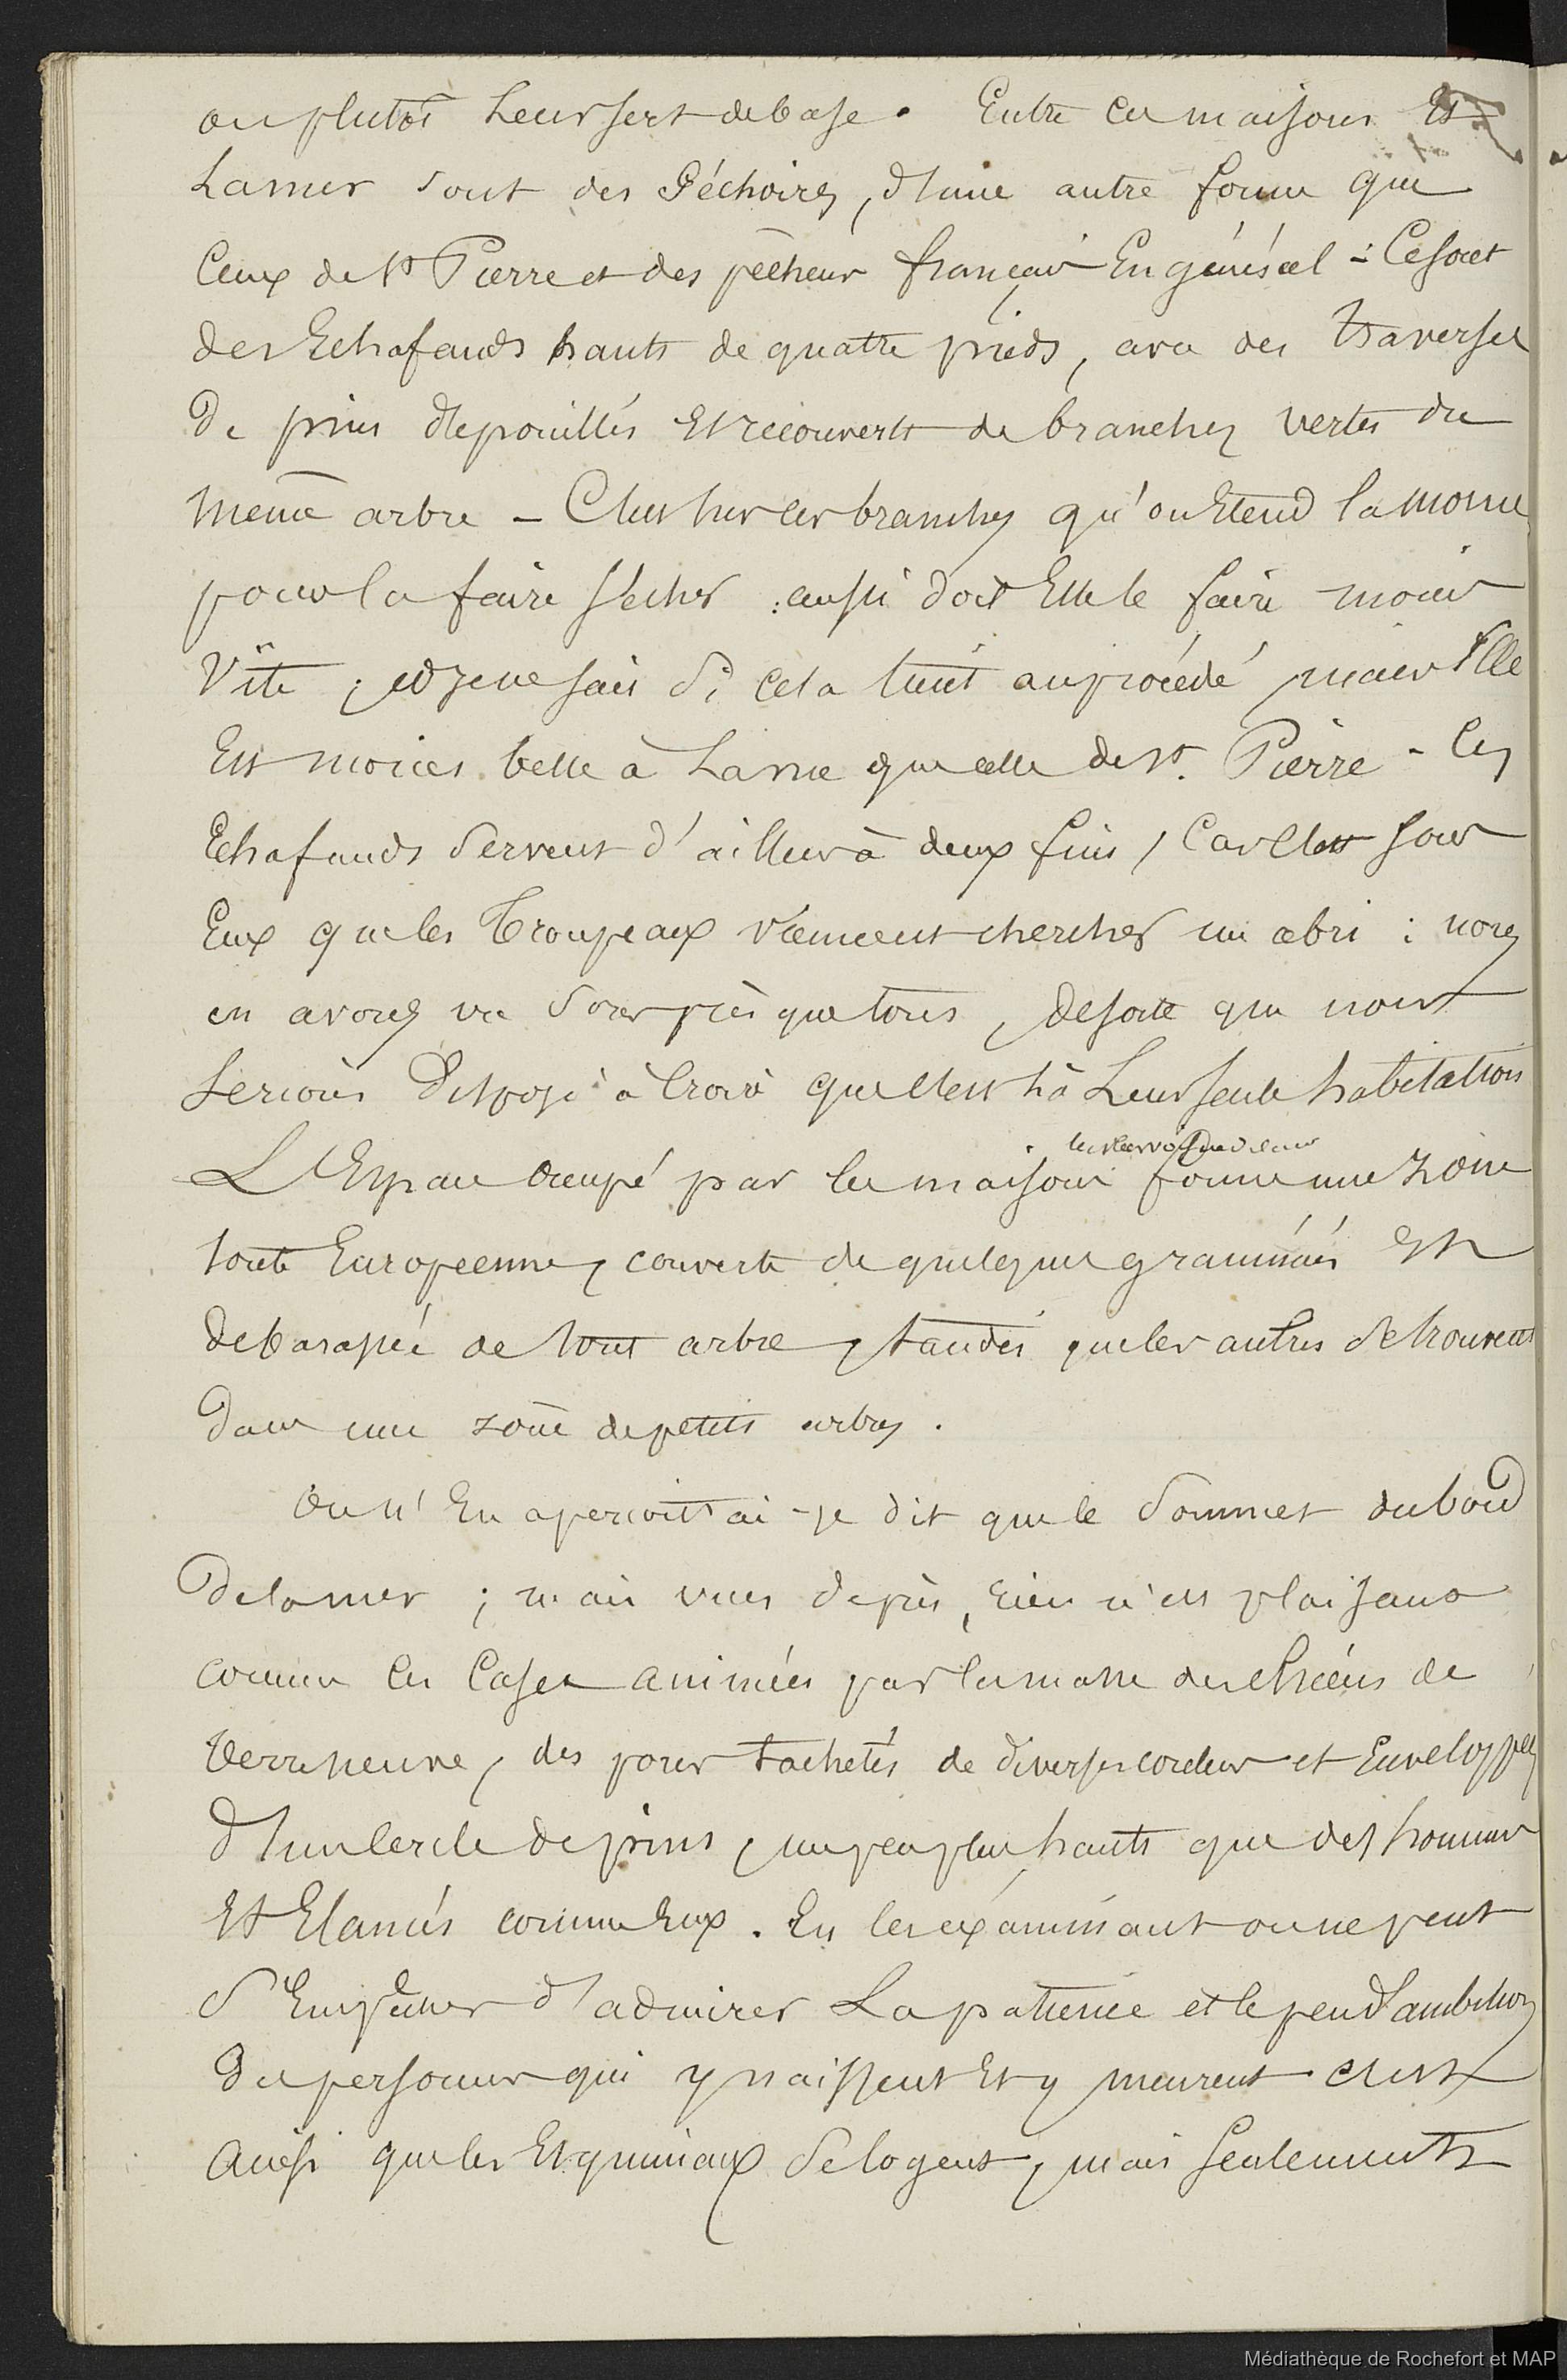 ou plutôt Leur sert de base. Entre ces maisons Et
La mer sont des Séchoirs, d'une autre forme que
Ceux de St Pierre et des pêcheurs français En général : Ce sont
des Echafauds hauts de quatre pieds, avec des traverses
De pins dépouillés Et recouverts de branches vertes du
même arbre - C'est sur les branches qu'on Etend la morue
pour la faire sécher : aussi doit Elle le faire moins
Vîte ; et je ne sais si cela tient au procédé, mais Elle
Est moins belle à La vue que celle de St. Pierre - Ces
Echafauds servent d'ailleurs à deux fins, Car c'est sous
Eux que les Troupeaux viennent chercher un abri : nous
en avons vu sous presque tous, de sorte que nous
serions disposé à Croire que c'est là Leur seule habitation
L'Espace occupé par les maisons forme une zône
toute Européenne, couverte de quelques graminées Et
debarassée de tout arbre, tandis que les autres se trouvent
dans une zône de petits arbres.
On n'En aperçoit ai-je dit que le sommet du bord
De la mer ; mais vues de près, rien n'est plaisant
comme ces Cases animées par la masse des chiens de
terre neuve, des porcs tachetés de diverses couleurs et Enveloppées
d'un cercle de pins, un peu plus hauts que des hommes
Et Elancés comme Eux. En les examinant on ne peut
s'Empêcher d'admirer La patience et le peu d'ambition
des personnes qui y naissent Et y meurent C'est
Ainsi que les Esquimaux se logent, mais seulement
Médiathèque de Rochefort et MAP